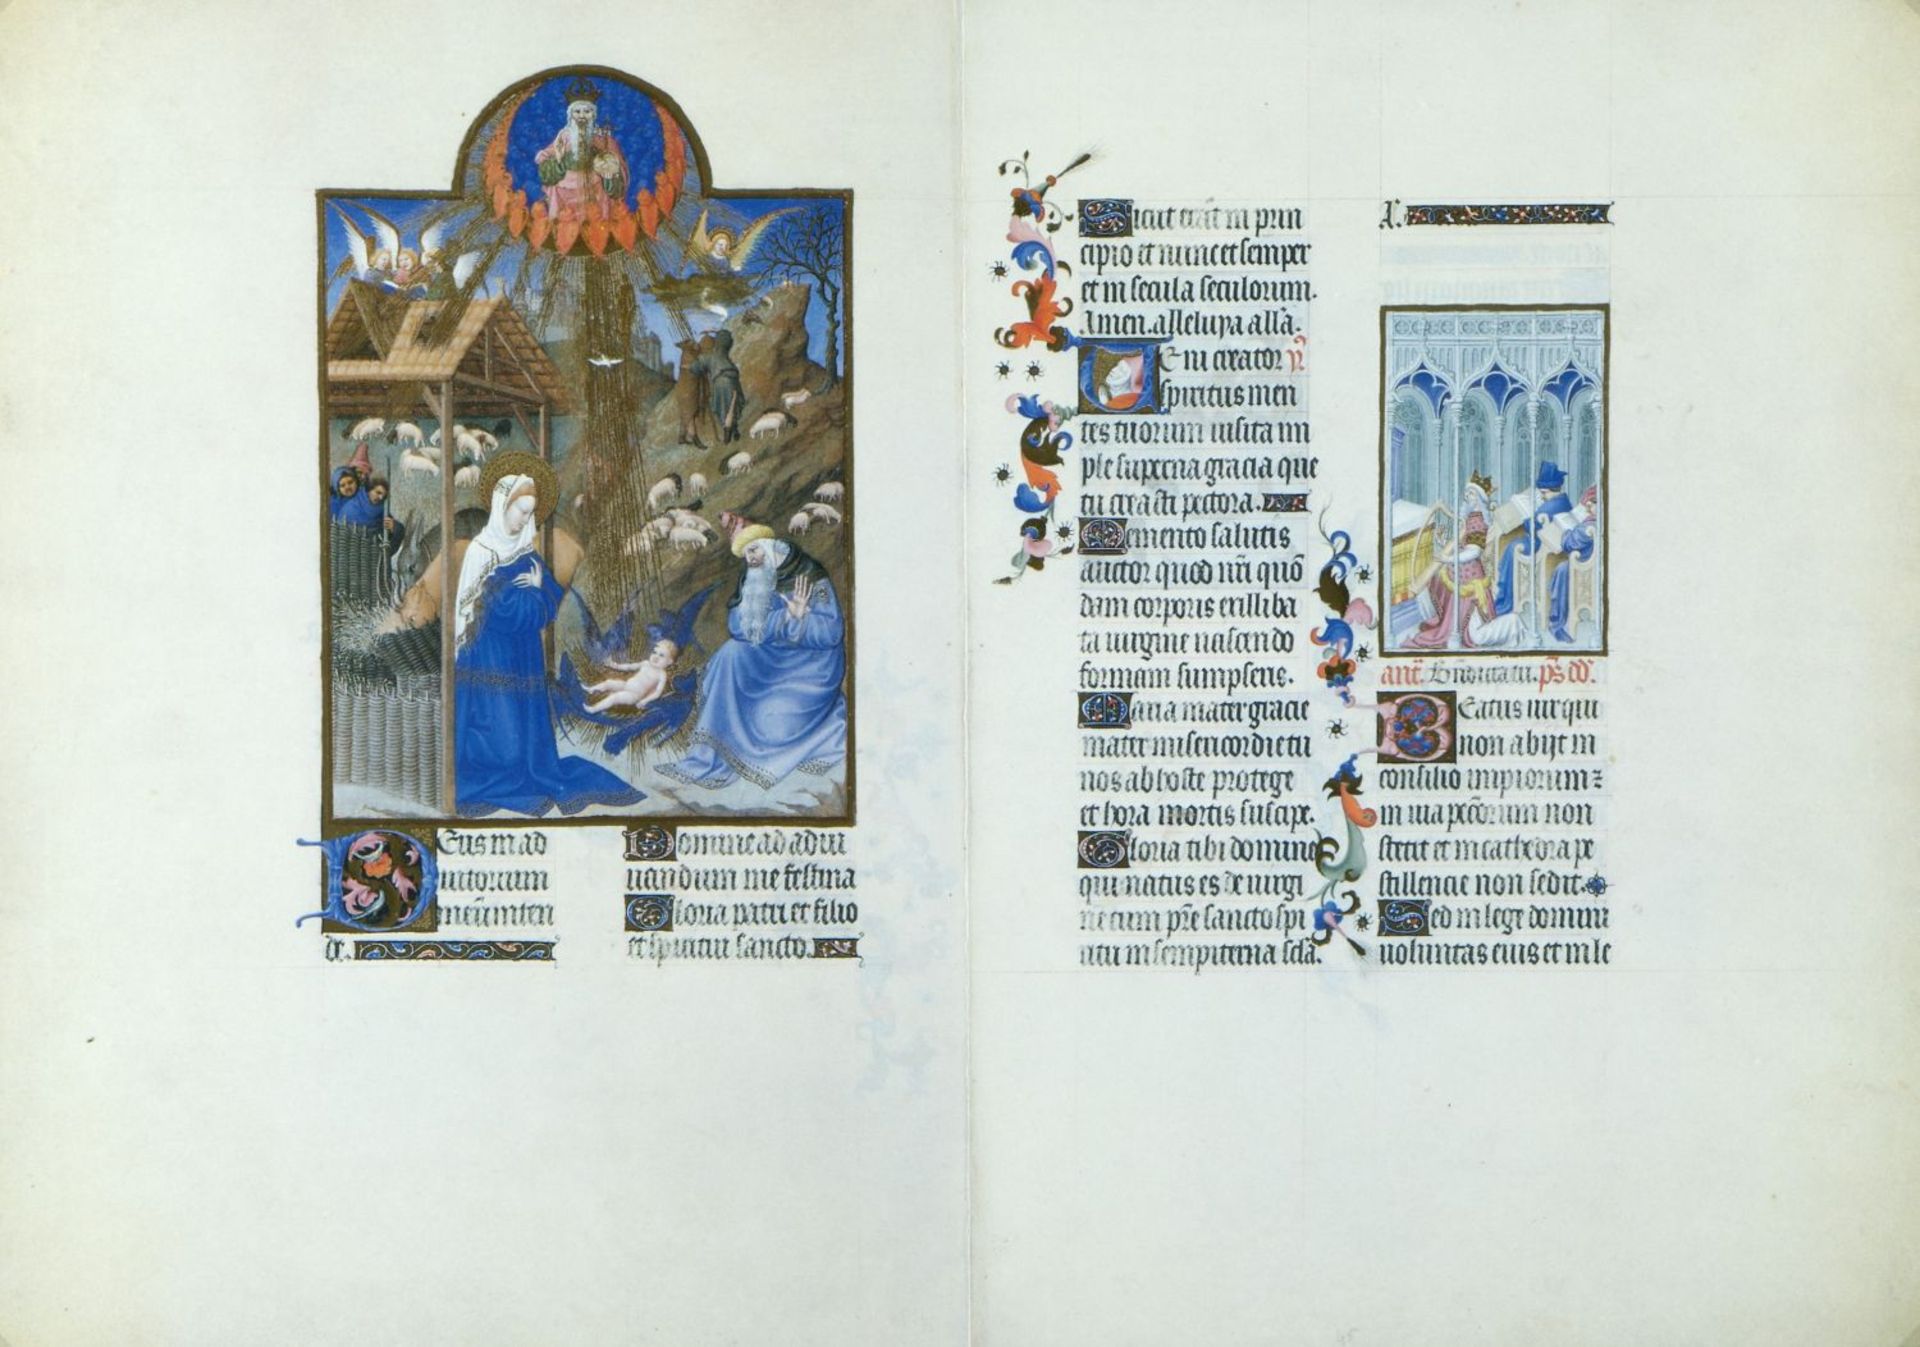 Deus in ad
iutorium
meū inten
de.
Domine ad adiu
uandum me festina
Gloria patri et filio
et spiritui sancto.
Sicut erat in prin
cipio et nunc et semper
et in secula seculorum.
Amen. alleluya all'a.
Veni creator
spiritus men
tes tuorum uisita im
ple superna gracia que
tu creasti pectora.
Memento salutis
auctor quod nr̄i quō
dam corporis ex illiba
ta uirgine nascendo
formam sumpseris.
Maria mater gracie
mater misericordie tu
nos ab hoste protege
et hora mortis suscipe.
Gloria tibi domine
qui natus es de uirgi
ne cum pr̄e sancto spi
ritu in sempiterna sc̄la.
A.
ant̄. Bn̄dicta tu. ps̄. dd̄.
Beatus uir qui
non abijt in
consilio impiorum ⁊
in uia pecc̄orum non
stetit et in cathedra pe
stilencie non sedit.
Sed in lege domini
uoluntas eius et in le